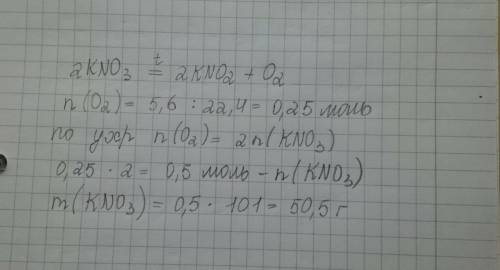 t
2KNO3 = 2KNO2 + O2
n(O2) = 5,6 : 22,4 = 0,25 моль
по ухр n(O2) = 2n(KNO3)
0,25 · 2 = 0,5 моль - n(KNO3)
m(KNO3) = 0,5 · 101 = 50,5 г